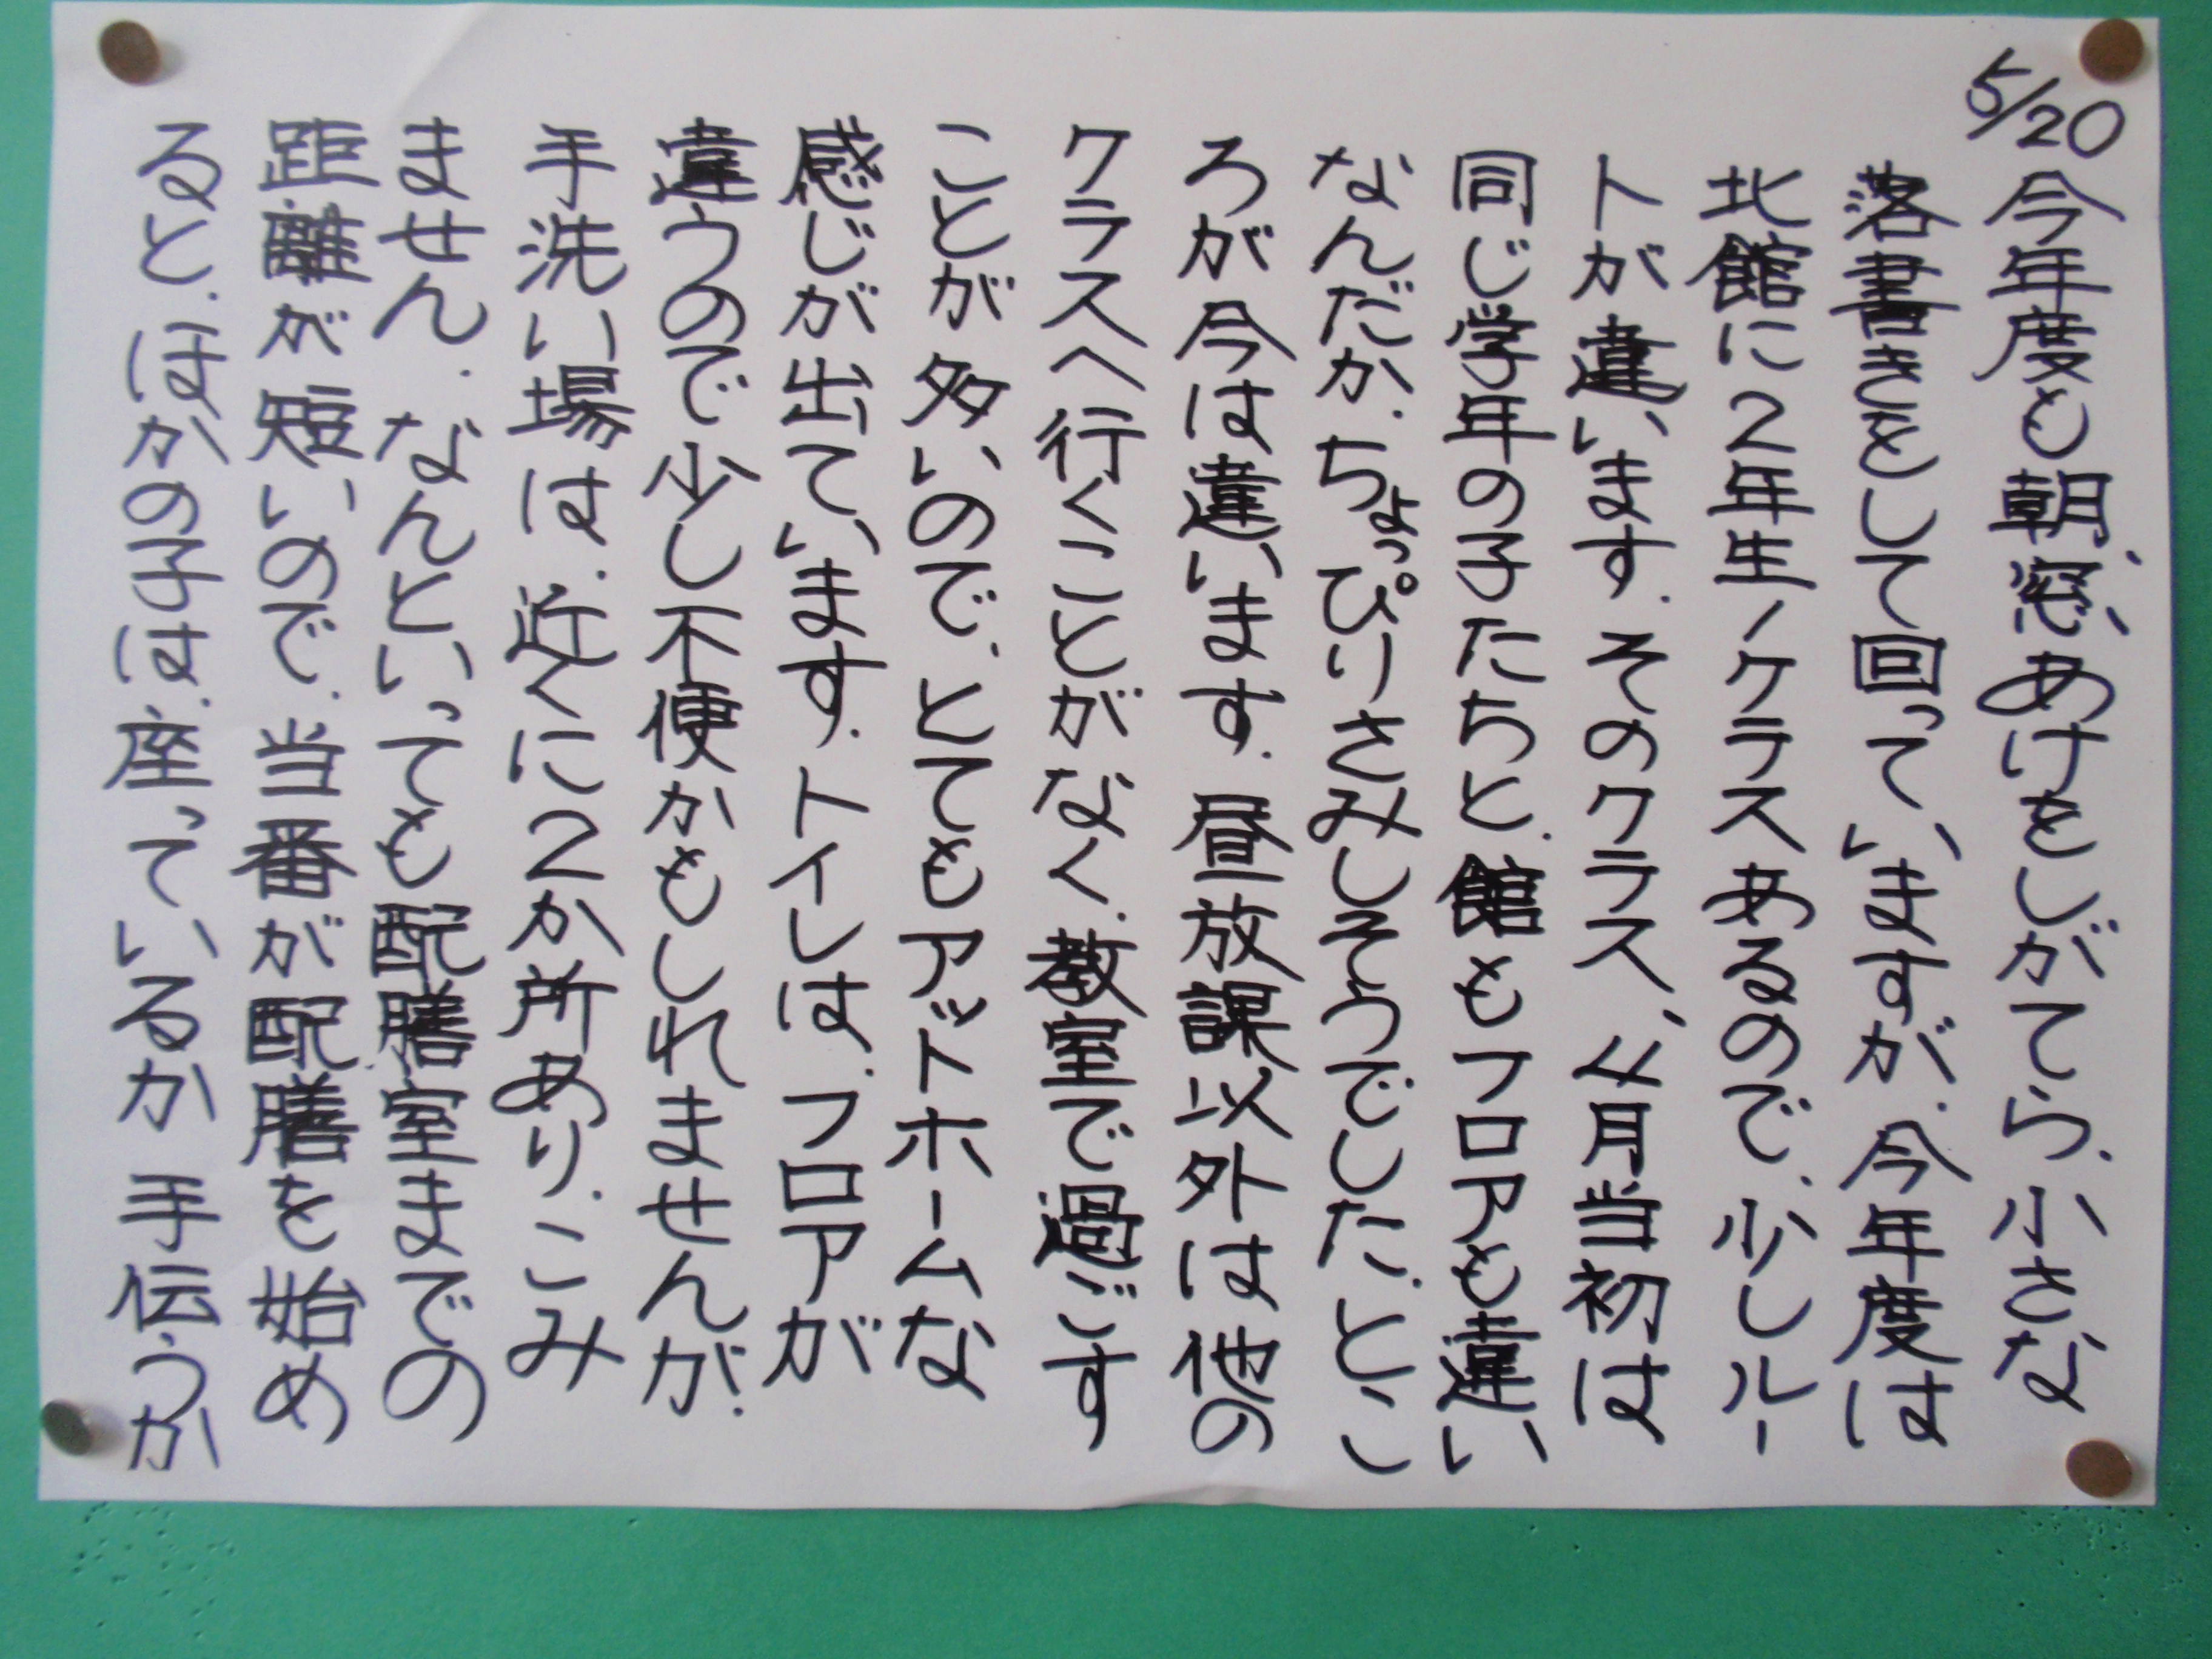 5/20
今年度も朝、窓あけをしがてら、小さな
落書きをして回っていますが、今年度は
北館に2年生1クラスあるので、少しルー
トが違います。そのクラス、4月当初は
同じ学年の子たちと、館もフロアも違い
なんだか、ちょっぴりさみしそうでした。とこ
ろが今は違います。昼放課以外は他の
クラスへ行くことがなく、教室で過ごす
ことが多いので、とてもアットホームな
感じが出ています。トイレは、フロアが
違うので少し不便かもしれませんが、
手洗い場は、近くに2か所あり、こみ
ません。なんといっても配膳室までの
距離が短いので、当番が配膳を始め
ると、ほかの子は、座っているか手伝うか